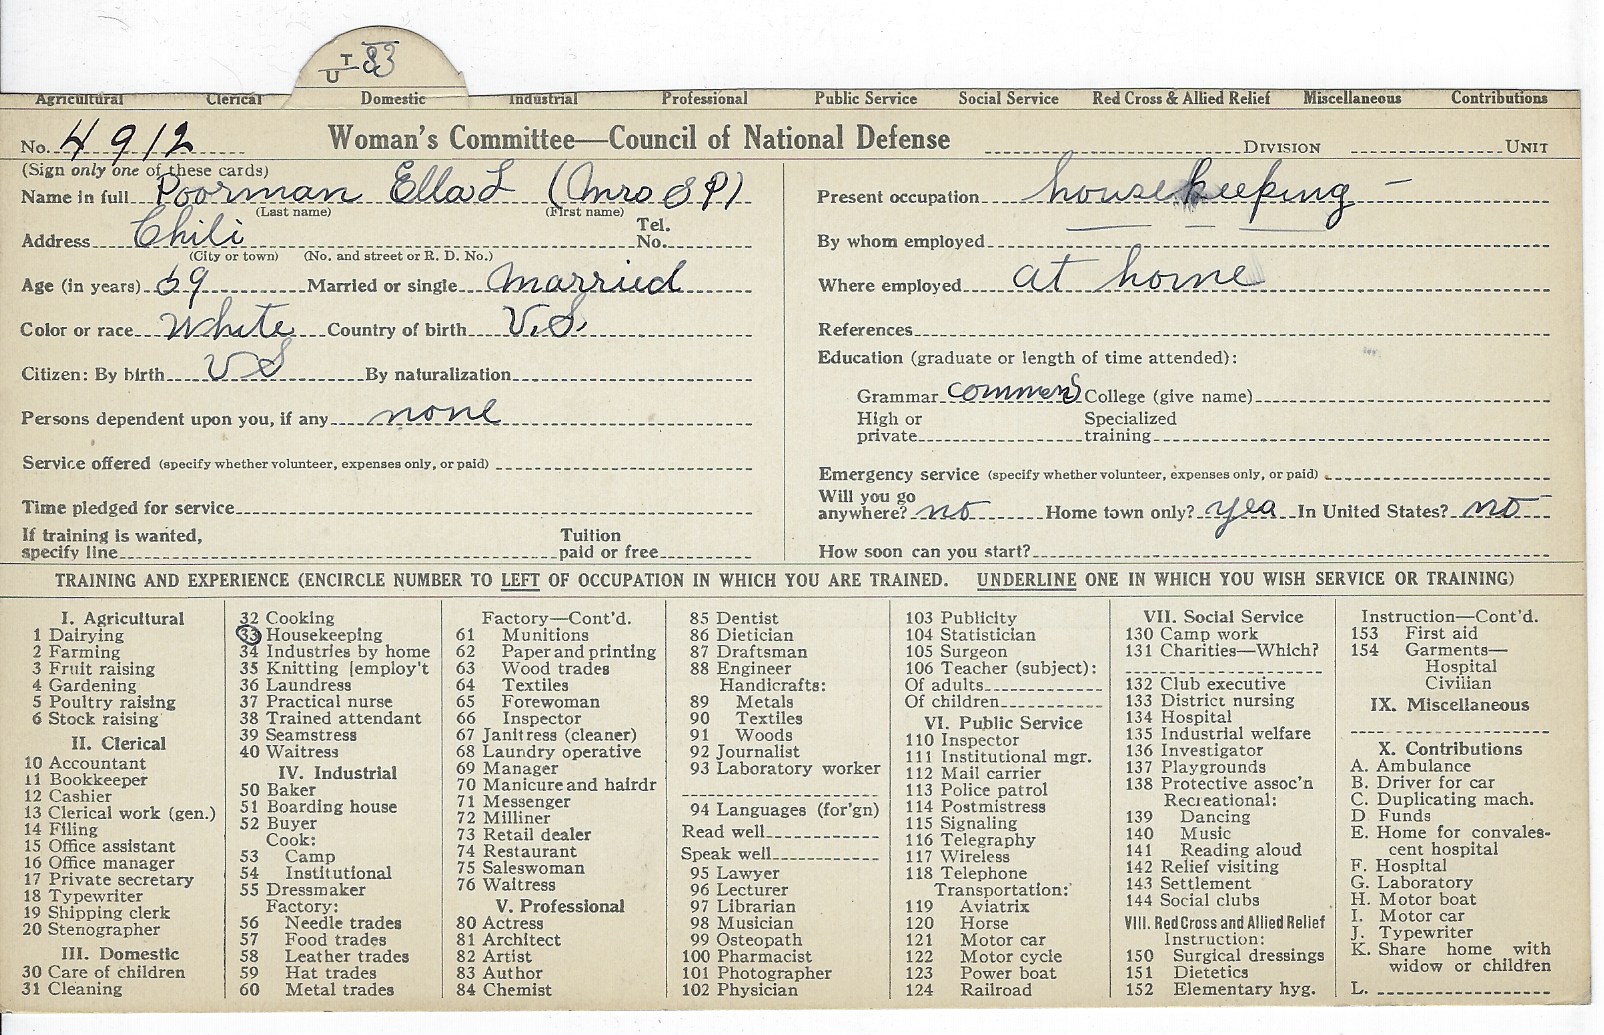 T
U 33
Agricultural Clerical Domestic Industrial Professional Public Service Social Service Red Cross & Allied Relief Miscellaneous Contributions
No. 4912 Woman's Committee—Council of National Defense DIVISION UNIT
(Sign only one of these cards)
Name in full Poorman Ella L (Mrs S P)
(Last name) (First name)
Address Chili Tel. No.
(City or town) (No. and street or R. D. No.)
Age (in years) 69 Married or single married
Color or race White Country of birth U.S.
Citizen: By birth US By naturalization
Persons dependent upon you, if any none
Service offered (specify whether volunteer, expenses only, or paid)
Time pledged for service
If training is wanted, specify line Tuition paid or free
Present occupation housekeeping –
By whom employed
Where employed at home
References
Education (graduate or length of time attended):
Grammar common College (give name)
High or private Specialized training
Emergency service (specify whether volunteer, expenses only, or paid)
Will you go anywhere? no Home town only? yea In United States? no
How soon can you start?
TRAINING AND EXPERIENCE (ENCIRCLE NUMBER TO LEFT OF OCCUPATION IN WHICH YOU ARE TRAINED. UNDERLINE ONE IN WHICH YOU WISH SERVICE OR TRAINING)
I. Agricultural
1 Dairying
2 Farming
3 Fruit raising
4 Gardening
5 Poultry raising
6 Stock raising
II. Clerical
10 Accountant
11 Bookkeeper
12 Cashier
13 Clerical work (gen.)
14 Filing
15 Office assistant
16 Office manager
17 Private secretary
18 Typewriter
19 Shipping clerk
20 Stenographer
III. Domestic
30 Care of children
31 Cleaning
32 Cooking
33 Housekeeping
34 Industries by home
35 Knitting [employ't
36 Laundress
37 Practical nurse
38 Trained attendant
39 Seamstress
40 Waitress
IV. Industrial
50 Baker
51 Boarding house
52 Buyer
Cook:
53 Camp
54 Institutional
55 Dressmaker
Factory:
56 Needle trades
57 Food trades
58 Leather trades
59 Hat trades
60 Metal trades
Factory—Cont'd.
61 Munitions
62 Paper and printing
63 Wood trades
64 Textiles
65 Forewoman
66 Inspector
67 Janitress (cleaner)
68 Laundry operative
69 Manager
70 Manicure and hairdr
71 Messenger
72 Milliner
73 Retail dealer
74 Restaurant
75 Saleswoman
76 Waitress
V. Professional
80 Actress
81 Architect
82 Artist
83 Author
84 Chemist
85 Dentist
86 Dietician
87 Draftsman
88 Engineer
Handicrafts:
89 Metals
90 Textiles
91 Woods
92 Journalist
93 Laboratory worker
94 Languages (for'gn)
Read well
Speak well
95 Lawyer
96 Lecturer
97 Librarian
98 Musician
99 Osteopath
100 Pharmacist
101 Photographer
102 Physician
103 Publicity
104 Statistician
105 Surgeon
106 Teacher (subject):
Of adults
Of children
VI. Public Service
110 Inspector
111 Institutional mgr.
112 Mail carrier
113 Police patrol
114 Postmistress
115 Signaling
116 Telegraphy
117 Wireless
118 Telephone
Transportation:
119 Aviatrix
120 Horse
121 Motor car
122 Motor cycle
123 Power boat
124 Railroad
VII. Social Service
130 Camp work
131 Charities—Which?
132 Club executive
133 District nursing
134 Hospital
135 Industrial welfare
136 Investigator
137 Playgrounds
138 Protective assoc'n
Recreational:
139 Dancing
140 Music
141 Reading aloud
142 Relief visiting
143 Settlement
144 Social clubs
VIII. Red Cross and Allied Relief
Instruction:
150 Surgical dressings
151 Dietetics
152 Elementary hyg.
Instruction—Cont'd.
153 First aid
154 Garments—
Hospital
Civilian
IX. Miscellaneous
X. Contributions
A. Ambulance
B. Driver for car
C. Duplicating mach.
D Funds
E. Home for convales-
cent hospital
F. Hospital
G. Laboratory
H. Motor boat
I. Motor car
J. Typewriter
K. Share home with
widow or children
L.